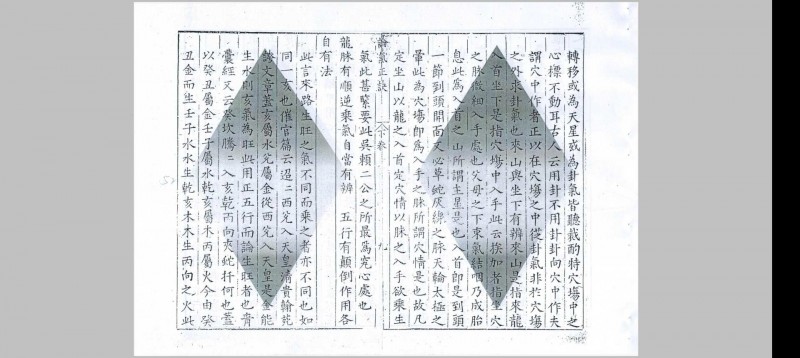 轉移或為天星或為卦氣皆臆裁酌特穴塲中之
心標不動耳古人云用卦不用卦卦向穴中作夫
謂穴中作者正以在穴塲之中從卦氣非於穴塲
之外求卦氣也來山與坐下有辨來山是指來龍
入首坐下是指穴塲中入手此云挨加者指坐穴
之脉微細入手處也父母之下束氣結咽乃成胎
息此為入首之山所謂主星是也入首即是到頭
一節到頭開面又必草蛇灰線之脉天輪太極之
暈此為穴塲即為入手之脉所謂穴情是也故凡
定坐山以龍之入首定穴情以脉之入手欲乘生
氣此甚緊要此吳賴二公之所最為究心處也
龍脉有順逆乘氣自當有辨 五行有顛倒作用各
自有法
此言來路生旺之氣不同而乘之者亦不同也如
同一亥也催官篇云迢二西兌入天皇清貴翰苑
文章蓋亥屬水兌屬金從西兌入天皇是金能
生水則亥氣為旺此用正五行而論生旺者也青
囊經又云癸坎騰二入亥乾丙向夾蛇扦何也蓋
以癸丑屬金壬子屬水乾亥屬木丙屬火今由癸
丑金而生壬子水水生乾亥木木生丙向之火此